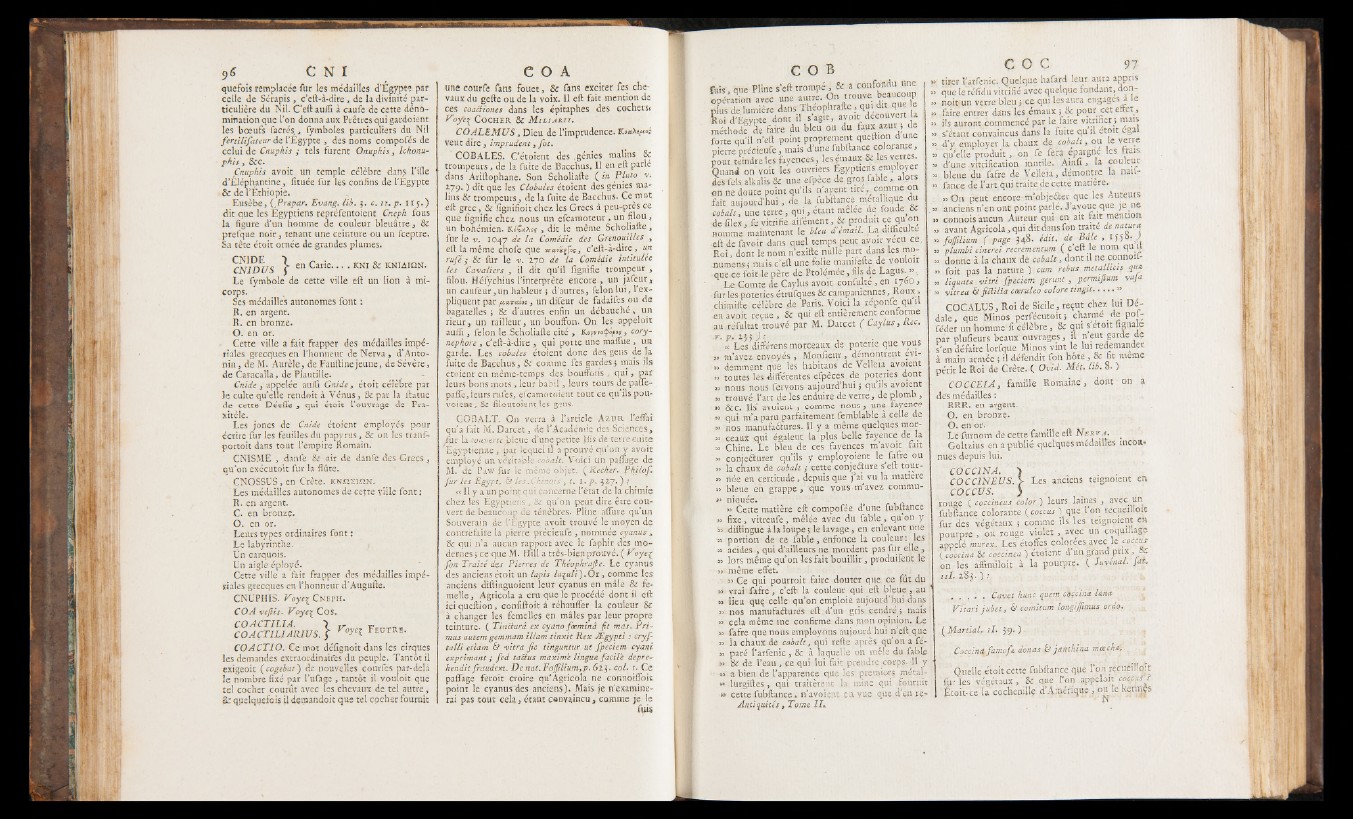 96 C N I
quefois remplacée sur les médailles d'Égypte par
celle de Sérapis, c'est-à-dire, de la divinité par-
ticulière du Nil. C'est aussi à cause de cette déno-
mination que l'on donna aux Prêtres qui gardoient
les bœufs sacrés, symboles particuliers du Nil
fertilisateur de l'Égypte, des noms composés de
celui de Cnuphis; tels furent Onuphis, Ichonu-
phis, &c.
Cnuphis avoit un temple célèbre dans l'isle
d'Éléphantine, située sur les confins de l'Egypte
& de l'Éthiopie.
Eusèbe, (Prapar. Evang. lib. 3. c. 11. p. 115.)
dit que les Egyptiens représentoient Cneph sous
la figure d'un homme de couleur bleuâtre, &
presque noir, tenant une ceinture ou un sceptre.
Sa tête étoit ornée de grandes plumes.
CNIDE
CNIDUS } en Carie.... ΚΝΙ & ΚΝΙΔΙΩΝ.
Le symbole de cette ville est un lion à mi-
corps.
Ses médailles autonomes sont :
R. en argent.
R. en bronze.
O. en or.
Cette ville a fait frapper des médailles impé-
riales grecques en l'honneur de Nerva, d'Anto-
nin, de M. Aurèle, de Faustine jeune, de Sévère,
de Caracalla, de Plautille.
Cnide, appelée aussi Gnide, étoit célèbre par
le culte qu'elle rendoit à Vénus, & par la statue
de cette Déesse, qui étoit l'ouvrage de Pra-
xitèle.
Les joncs de Cnide étoient employés pour
écrire sur les feuilles du papyrus, & on les trans-
portoit dans tout l'empire Romain.
CNISME, danse & air de danse des Grecs,
qu'on exécutoit sur la flûte.
CNOSSUS, en Crête. ΚΝΩΣΙΩΝ.
Les médailles autonomes de cette ville sont:
R. en argent.
C. en bronze.
O. en or.
Leurs types ordinaires sont :
Le labyrinthe.
Un carquois.
Un aigle éployé.
Cette ville a fait frapper des médailles impé-
riales grecques en l'honneur d'Auguste.
CNUPHIS. Voyez CNEPH.
COA vestis. Voyez Cos.
COACTILIA.
COACTILIARIUS. } Voyez FEUTRE.
COACTIO. Ce mot désignoit dans les cirques
les demandes extraordinaires du peuple. Tantôt il
exigeoit (cogebat) de nouvelles courses par-delà
le nombre fixé par l'usage, tantôt il vouloit que
tel cocher courût avec les chevaux de tel autre,
& quelquefois il demandoit que tel cocher fournît
C O A
une course sans fouet, & sans exciter ses che-
vaux du geste ou de la voix. Il est fait mention de
ces coactiones dans les épitaphes des cochers.
Voyez COCHER &
COALEMUS, Dieu de l'imprudence.
veut dire, imprudent, sot.
COBALES. C'étoient des génies malins &
trompeurs, de la suite de Bacchus. Il en est parlé
dans Aristophane. Son Scholiaste (in Pluto v.
279.) dit que les Clobales étoient des génies ma-
lins & trompeurs, de la suite de Bacchus. Ce mot
est grec, & signifioit chez les Grecs à peu-près ce
que signifie chez nous un escamoteur, un filou,
un bohémien. dit le même Scholiaste,
sur le v. 1047 de la Comédie des Grenouilles,
est la même chose que c'est-à-dire, un
rusé; & sur le v. 270 de la Comédie intitulée
les Cavaliers, il dit qu'il signifie trompeur,
filou. Hésychius l'interprète encore, un jaseur,
un causeur, un hableur; d'autres, selon lui, l'ex-
pliquent par un diseur de fadaises ou de
bagatelles; & d'autres enfin un débauché, un
rieur, un railleur, un bouffon. On les appeloit
aussi, selon le Scholiaste cité, cory-
nephore, c'est-à-dire, qui porte une massue, un
garde. Les cobales étoient donc des gens de la
suite de Bacchus, & comme ses gardes; mais ils
étoient en même-temps des bouffons, qui, par
leurs bons mots, leur babil, leurs tours de passe-
passe, leurs ruses, escamotoient tout ce qu'ils pou-
voient, & filoutoient les gens.
COBALT. On verra à l'article AZUR l'essai
qu'a fait M. Darcet, de l'Académie des Sciences,
sur la couverte bleue d'une petite Isis de terre cuite
Egyptienne, par lequel il a prouvé qu'on y avoit
employé un véritable cobalt. Voici un passage de
M. de Paw sur le même objet. (Recher. Philos.
sur les Egypt. & les Chinois, t. 1. p. 327.) :
« Il y a un point qui concerne l'état de la chimie
chez les Egyptiens, & qu'on peut dire être cou-
vert de beaucoup de ténèbres. Pline assure qu'un
Souverain de l'Egypte avoit trouvé le moyen de
contrefaire la pierre précieuse, nommée cyanus,
& qui n'a aucun rapport avec le saphir des mo-
dernes; ce que M. Hill a très-bien prouvé. (Voyez
son Traité des Pierres de Théophraste. Le cyanus
des anciens étoit un lapis lazuli). Or, comme les
anciens distinguoient leur cyanus en mâle & fe-
melle, Agricola a cru que le procédé dont il est
ici question, consistoit à réhausser la couleur &
à changer les femelles en mâles par leur propre
teinture. (Tinctura ex cyano fœmina fit mas. Pri-
mus autem gemmam illam tinxit Rex Ægypti : crys-
talli etiam & vitra sic tinguntur ut speciem cyani
exprimant; sed tactus maximè linguæ facilè depre-
hendit fraudem. De nat. Fossilium, p. 623. col. 1. Ce
passage feroit croire qu'Agricola ne connoissoit
point le cyanus des anciens). Mais je n'examine-
rai pas tout cela, étant convaincu, comme je le
suis
C O B
suis, que Pline s'est trompé, & a confondu une
opération avec une autre. On trouve beaucoup
plus de lumière dans Théophraste, qui dit que le
Roi d'Egypte dont il s'agit, avoit découvert la
méthode de faire du bleu ou du faux azur; de
sorte qu'il n'est point proprement question d'une
pierre précieuse, mais d'une substance colorante,
pour teindre les fayences, les émaux & les verres.
Quand on voit les ouvriers Egyptiens employer
des sels alkalis & une espèce de gros sable, alors
on ne doute point qu'ils n'ayent tiré, comme on
fait aujourd'hui, de la substance métallique du
cobalt, une terre, qui, étant mêlée de soude &
de silex, se vitrifie aisément, & produit ce qu'on
nomme maintenant le bleu d'émail. La difficulté
est de savoir dans quel temps peut avoir vécu ce
Roi, dont le nom n'existe nulle part dans les mo-
numens; mais c'est une folie manifeste de vouloir
que ce soit le père de Ptolémée, fils de Lagus. »
Le Comte de Caylus avoit consulté, en 1760,
sur les poteries étrusques & campaniennes, Roux,
chimiste célèbre de Paris. Voici la réponse qu'il
en avoit reçue, & qui est entièrement conforme
au résultat trouvé par M. Darcet (Caylus, Rec.
v. p. 233.) :
« Les différens morceaux de poterie que vous
» m'avez envoyés, Monsieur, démontrent évi-
» demment que les habitans de Velleia avoient
» toutes les différentes espèces de poteries dont
» nous nous servons aujourd'hui; qu'ils avoient
» trouvé l'art de les enduire de verre, de plomb,
» &c. Ils avoient, comme nous, une fayence
» qui m'a paru parfaitement semblable à celle de
» nos manufactures. Il y a même quelques mor-
» ceaux qui égalent la plus belle fayence de la
» Chine. Le bleu de ces fayences m'avoit fait
» conjecturer qu'ils y employoient le safre ou
» la chaux de cobalt; cette conjecture s'est tour-
» née en certitude, depuis que j'ai vu la matière
» bleue en grappe, que vous m'avez commu-
» niquée.
» Cette matière est composée d'une substance
» fixe, vitreuse, mêlée avec du sable, qu'on y
» distingue à la loupe; le lavage, en enlevant une
» portion de ce sable, enfonce la couleur: les
» acides, qui d'ailleurs ne mordent pas sur elle,
» lors même qu'on les fait bouillir, produisent le
» même effet.
» Ce qui pourroit faire douter que ce fût du
» vrai safre, c'est la couleur qui est bleue, au
» lieu que celle qu'on emploie aujourd'hui dans
» nos manufactures est d'un gris cendré; mais
» cela même me confirme dans mon opinion. Le
» safre que nous employons aujourd'hui n'est que
» la chaux de cobalt, qui reste après qu'on a sé-
» paré l'arsenic, & à laquelle on mêle du sable
» & de l'eau, ce qui lui fait prendre corps. Il y
» a bien de l'apparence que les premiers métal-
» lurgistes, qui traitèrent la mine qui fournit
» cette substance, n'avoient en vue que d'en re-
Antiquités, Tome II.
C O C 97
» tirer l'arsenic. Quelque hasard leur aura appris
» que le résidu vitrifié avec quelque fondant, don-
» noit un verre bleu; ce qui les aura engagés à le
» faire entrer dans les émaux; & pour cet effet,
» ils auront commencé par le faire vitrifier; mais
» s'étant convaincus dans la suite qu'il étoit égal
» d'y employer la chaux de cobalt, ou le verre
» qu'elle produit, on se sera épargné les frais
» d'une vitrification inutile. Ainsi, la couleur
» bleue du safre de Velleia, démontre la nais-
» sance de l'art qui traite de cette matière.
» On peut encore m'objecter que les Auteurs
» anciens n'en ont point parlé. J'avoue que je ne
» connois aucun Auteur qui en ait fait mention
» avant Agricola, qui dit dans son traité de natura
» fossilium (page 348. édit. de Bâle, 1558.)
» plumbi cinerei recrementum (c'est le nom qu'il
» donne à la chaux de cobalt, dont il ne connois-
» soit pas la nature) cum rebus metallicis quæ
» liquatæ vitri speciem gerunt, permistum vasa
» vitrea & fictilia cœruleo colore tingit..... »
COCALUS, Roi de Sicile, reçut chez lui Dé-
dale, que Minos persécutoit; charmé de pos-
séder un homme si célèbre, & qui s'étoit signalé
par plusieurs beaux ouvrages, il n'eut garde de
s'en défaire lorsque Minos vint le lui redemander
à main armée; il défendit son hôte, & fit même
périr le Roi de Crète. (Ovid. Mét. lib. 8.)
COCCEIA, famille Romaine, dont on a
des médailles :
RRR. en argent.
O. en bronze.
O. en or.
Le surnom de cette famille est NERVA.
Goltzius en a publié quelques médailles incon-
nues depuis lui.
COCCINA.
COCCINEUS.
COCCUS. } Les anciens teignoient en
rouge (coccineus color) leurs laines, avec un
substance colorante (coccus) que l'on recueilloit
sur des végétaux; comme ils les teignoient en
pourpre, ou rouge violet, avec un coquillage
appelé murex. Les étoffes colorées avec le coccus
(coccina & coccinea) étoient d'un grand prix, &
on les assimiloit à la pourpre. (Juvénal. sat.
III. 283.) :
..... Cavet hunc quem coccina læna
Vitari jubet, & comitum longissimus ordo.
(Martial. II. 39.)
Coccina famosæ donas & janthina mœchæ.
Quelle étoit cette substance que l'on recueilloit
sur les végétaux, & que l'on appelait coccus?
Étoit-ce la cochenille d'Amérique, ou le kermès
N